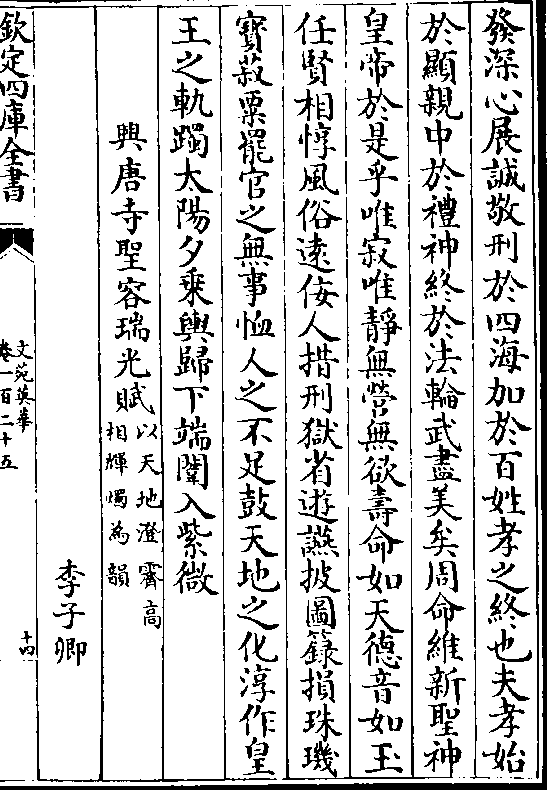 發深心展誠敬刑於四海加於百姓孝之終也夫孝始
於顯親中於禮神終於法輪武盡美矣周命維新聖神
皇帝於是乎唯寂唯靜無營無欲壽命如天德音如玉
任賢相惇風俗遠佞人措刑獄省遊讌披圖籙捐珠璣
寶菽粟罷官之無事恤人之不足鼓天地之化淳作皇
王之軌躅太陽夕乘輿歸下端闈入紫微
興唐寺聖容瑞光賦以天地澄霽高
相輝燭為韻
李子卿
欽定四庫全書
文苑英華
卷一百二十五
十四